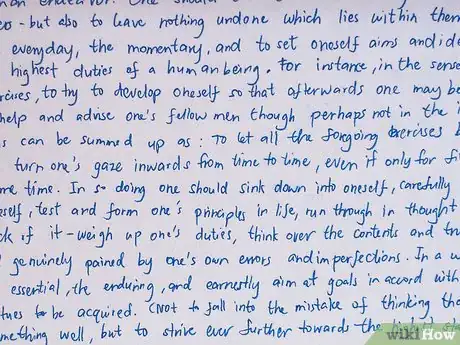 man endeavor. One should
- but also to leave nothing undone which lies within them
everyday, the momentary, and to set oneself aims and ide
highest duties of a human being. For instance, in the sense
rcises, to try to develop oneself so that afterwards one may be
help and advise one's fellow men though perhaps not in the i
s can be summed up as: To let all the forgoing exercises b
turn one's gaze inwards from time to time, even if only for fi
me time. In so doing one should sink down into oneself, carefully
self, test and form one's principles in life, run through in thought
k of it - weigh up one's duties, think over the contents and tru
genuinely pained by one's own errors and imperfections. In a w
essential, the enduring, and earnestly aim at goals in accord with
tues to be acquired. (Not to fall into the mistake of thinking tha
mething well, but to strive ever further towards the
wikiHow